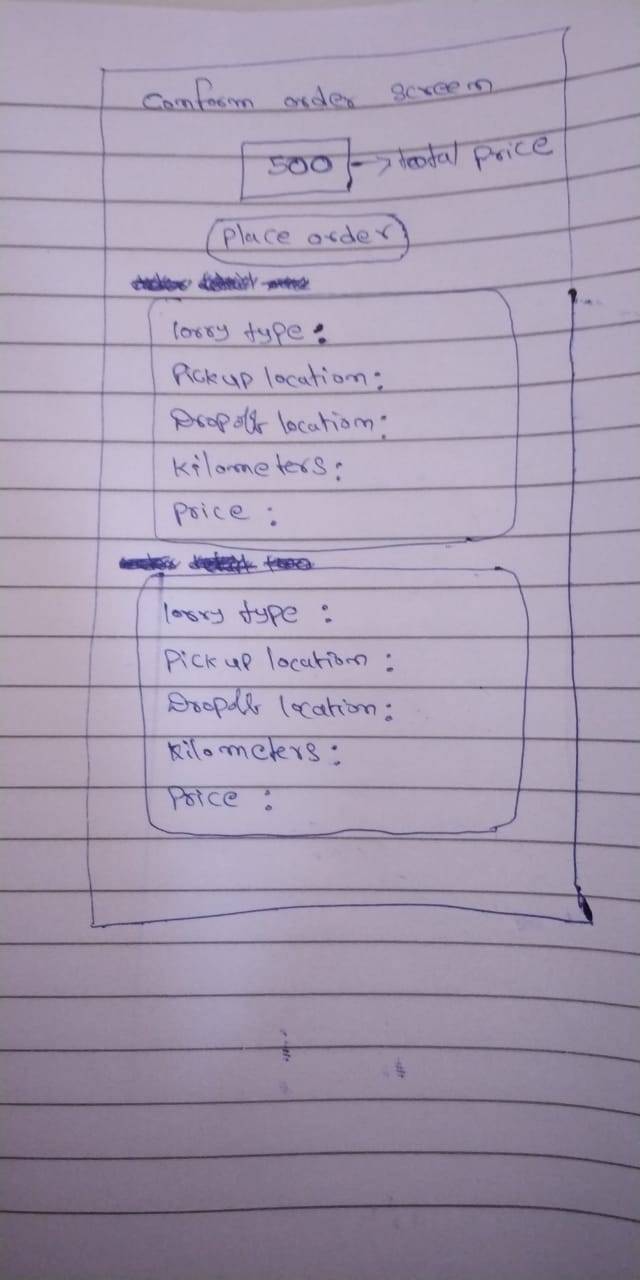 Comform order screen
500 → total price
Place order
lorry type :
Pickup location :
Dropoff location :
Kilometers :
Price :
lorry type :
Pick up location :
Dropoff location :
Kilometers :
Price :